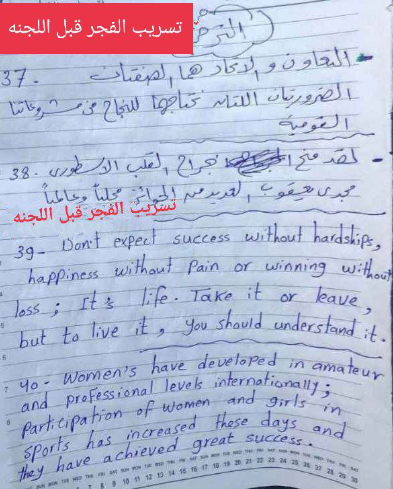 تسريب الفجر قبل اللجنه
37- التعاون و الاتحاد هما الصفتان
الضروريتان اللتان نحتاجهما للنجاح في مشروعاتنا
القومية
38- لقد منح جراح القلب الاسطورى
مجدى يعقوب العديد من الجوائز محلياً وعالمياً
تسريب الفجر قبل اللجنه
39- Don't expect success without hardships,
happiness without Pain or winning without
loss; It's life. Take it or leave,
but to live it, you should understand it.
40- Women's have developed in amateur
and professional levels internationally;
Participation of women and girls in
sports has increased these days and
they have achieved great success.